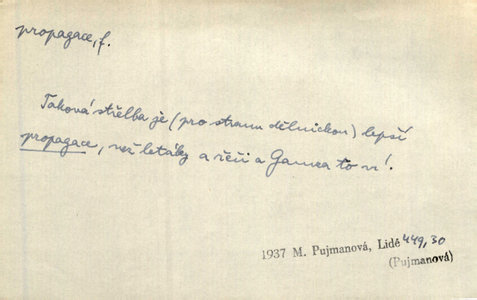 propagace, f.
Taková střelba je (pro stranu dělnickou) lepší
propagace, než letáky a řeči a Gamza to ví.
1937 M. Pujmanová, Lidé 449,30
(Pujmanová)